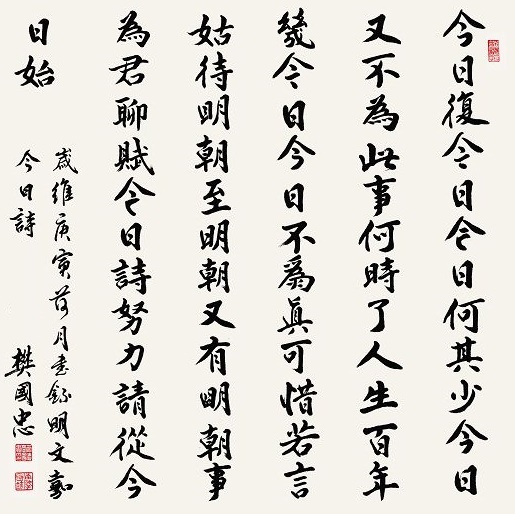 今日復今日今日何其少今日
又不為此事何時了人生百年
幾今日今日不爲眞可惜若言
姑待明朝至明朝又有明朝事
為君聊賦今日詩努力請從今
日始
歲維庚寅荷月書錄明文嘉
今日詩
樊國忠